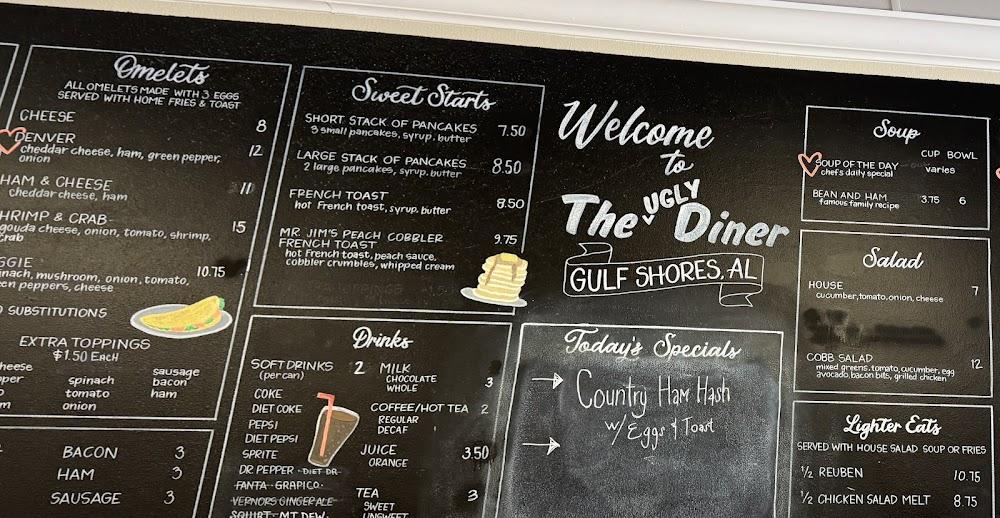 Omelets
ALL OMELETS MADE WITH 3 EGGS
SERVED WITH HOME FRIES & TOAST
CHEESE 8
DENVER 12
cheddar cheese, ham, green pepper,
onion
HAM & CHEESE 11
cheddar cheese, ham
HRIMP & CRAB 15
gouda cheese, onion, tomato, shrimp,
crab
GGIE 10.75
inach, mushroom, onion, tomato,
en peppers, cheese
SUBSTITUTIONS
EXTRA TOPPINGS
$1.50 EACH
heese spinach sausage
per tomato bacon
m onion ham
BACON 3
HAM 3
SAUSAGE 3
Sweet Starts
SHORT STACK OF PANCAKES 7.50
3 small pancakes, syrup, butter
LARGE STACK OF PANCAKES 8.50
2 large pancakes, syrup, butter
FRENCH TOAST 8.50
hot French toast, syrup, butter
MR JIM'S PEACH COBBLER 9.75
FRENCH TOAST
hot French toast, peach sauce,
cobbler crumbles, whipped cream
Drinks
SOFT DRINKS 2
(per can)
COKE
DIET COKE
PEPSI
DIET PEPSI
SPRITE
DR PEPPER - DIET DR
FANTA - GRAPICO
VERNORS GINGER ALE
SQUIRT - MT DEW
MILK 3
CHOCOLATE
WHOLE
COFFEE/HOT TEA 2
REGULAR
DECAF
JUICE 3.50
ORANGE
TEA 3
SWEET
UNSWEET
Welcome
to
The UGLY Diner
GULF SHORES, AL
Today's Specials
→ Country Ham Hash
w/ Eggs & Toast
→
Soup
CUP BOWL
SOUP OF THE DAY varies
chef's daily special
BEAN AND HAM 3.75 6
famous family recipe
Salad
HOUSE 7
cucumber, tomato, onion, cheese
COBB SALAD 12
mixed greens, tomato, cucumber, egg
avocado, bacon bits, grilled chicken
Lighter Eats
SERVED WITH HOUSE SALAD SOUP OR FRIES
1/2 REUBEN 10.75
1/2 CHICKEN SALAD MELT 8.75